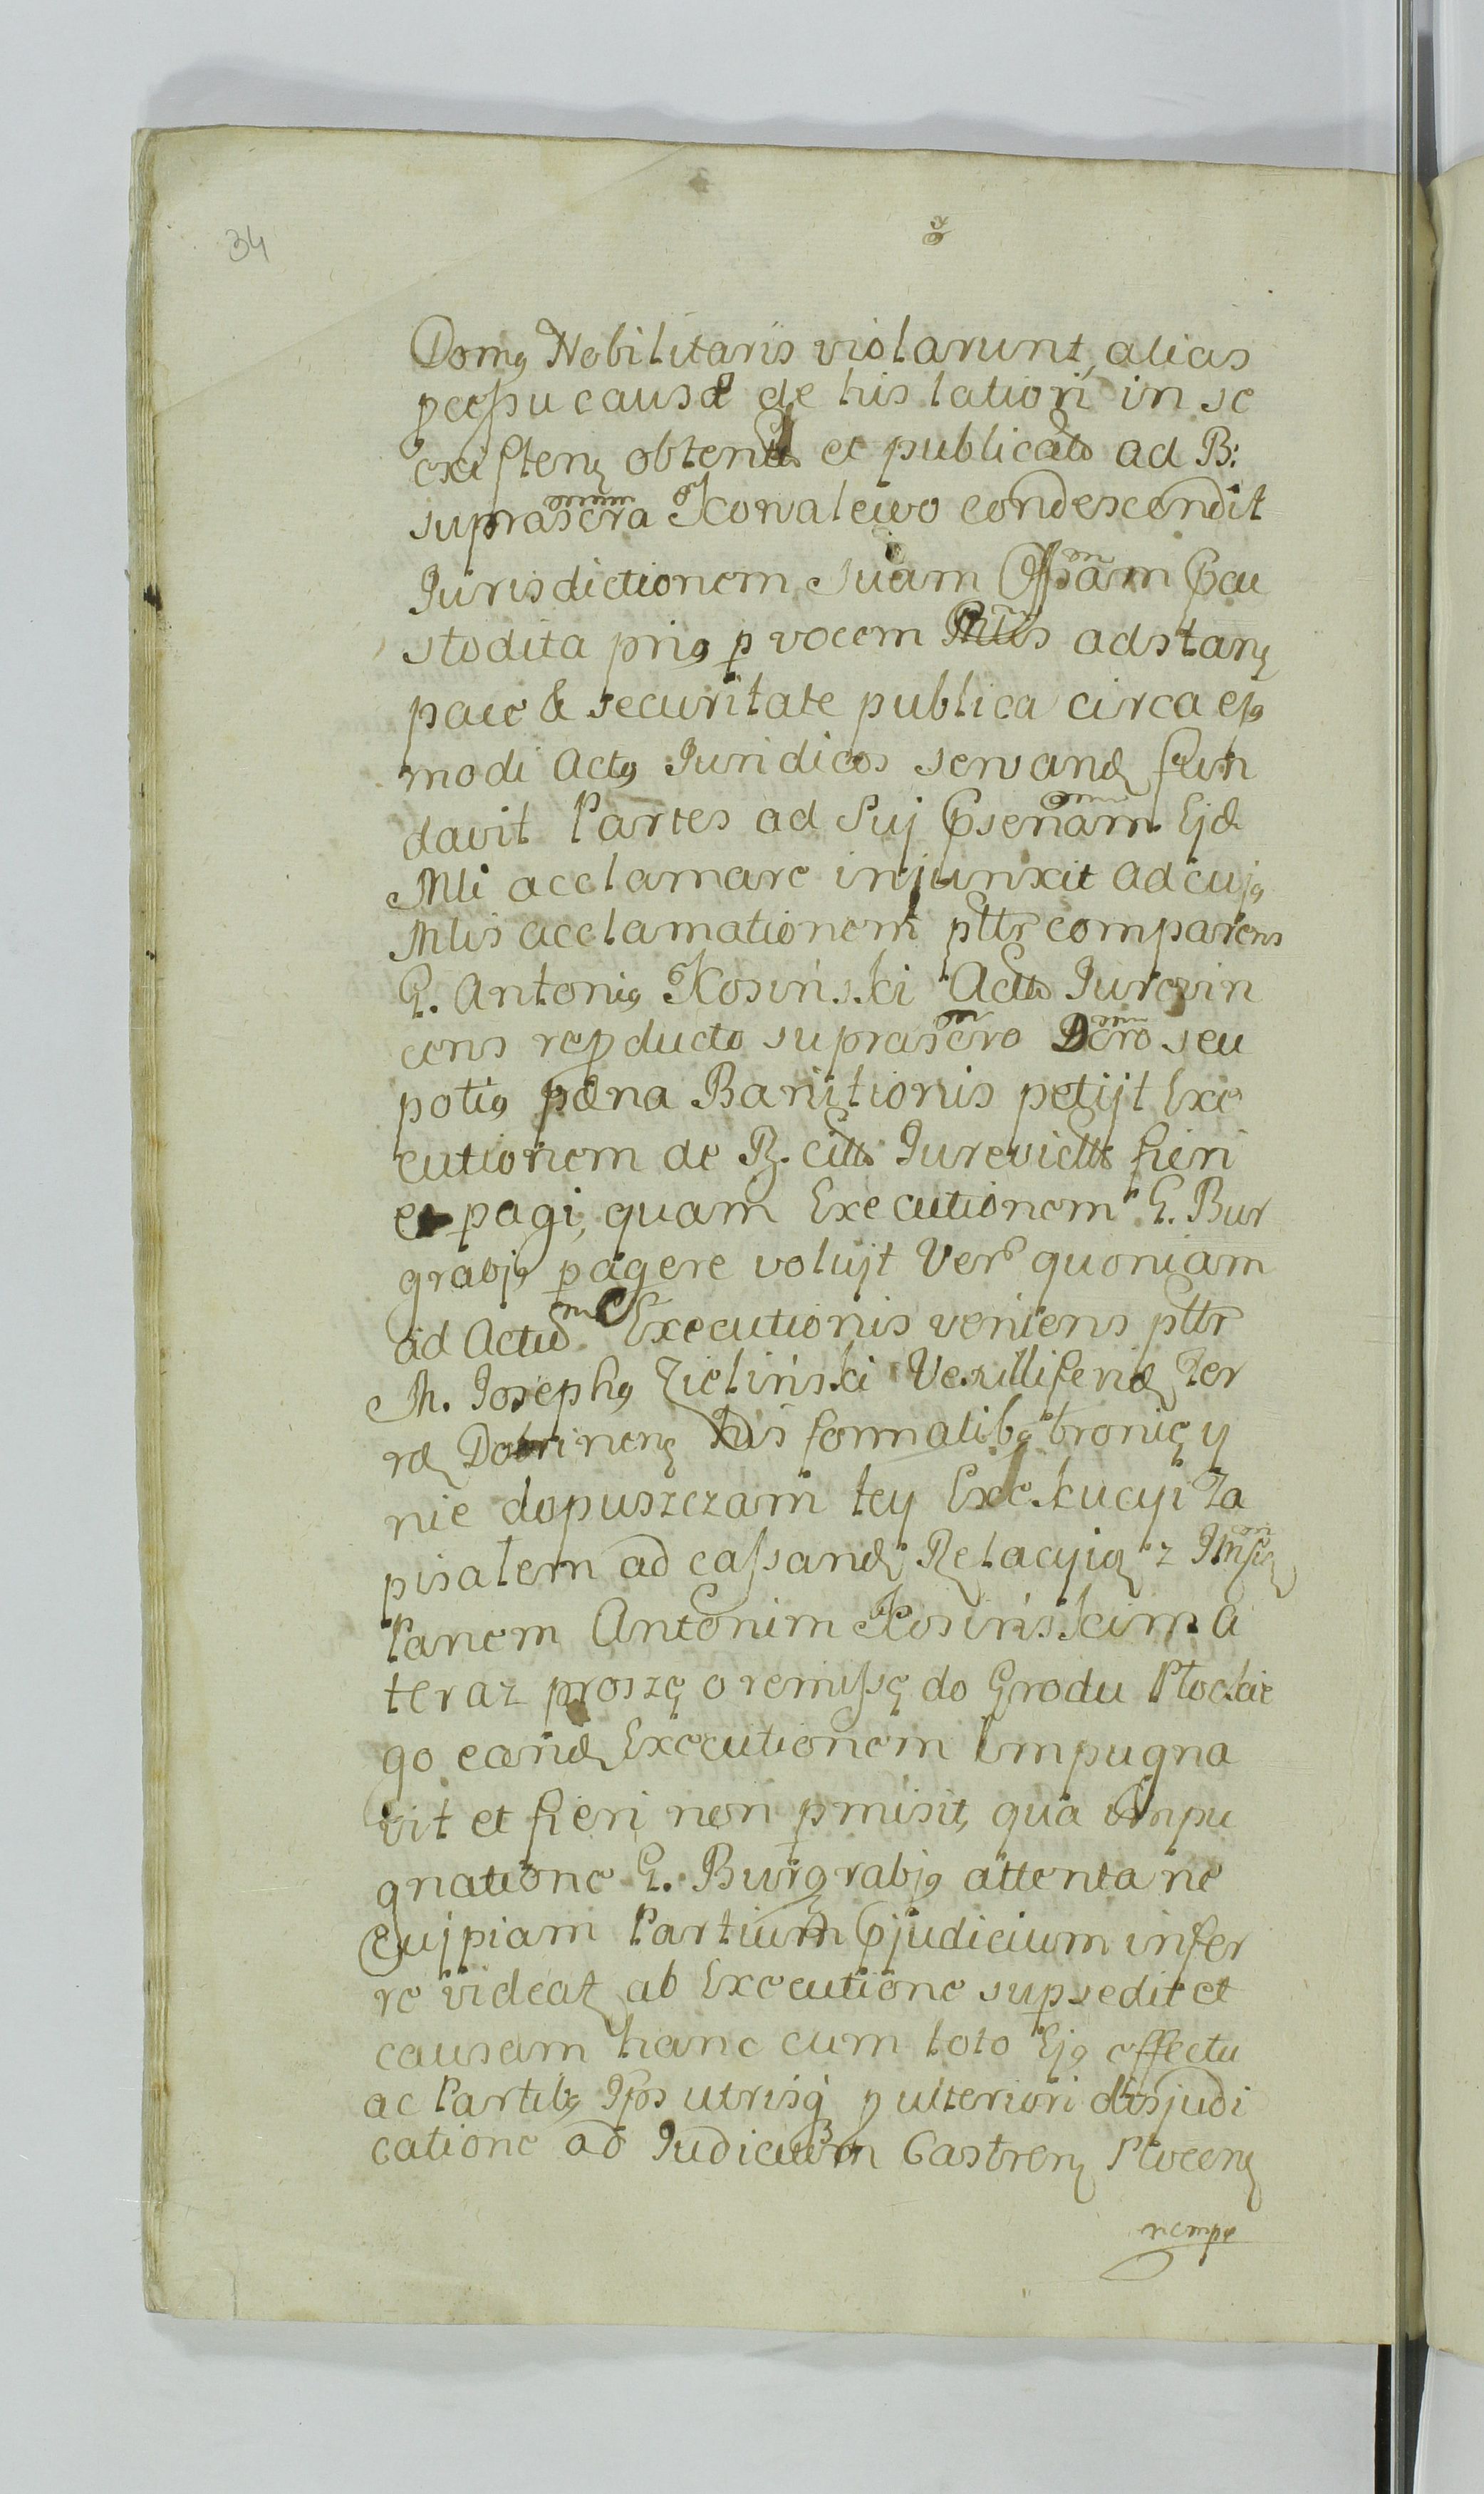 34
Domꝯ Nobilitaris violarunt, alias
ꝓcessu causæ de his latiori in se
existenȝ obtentȝ et publicato ad B:
suprascra Kowalewo condescendit
Jurisdictionem suam Offsam Ꝓcu
stodita priꝯ ꝑ vocem Mltis adstanȝ
pace & securitate publica circa ejꝯ
modi Actꝯ Juridicos servandȝ fun
davit Partes ad Suj Ꝓsenam Ejd
Mli acclamare injunxit ad cujꝯ
Mlis acclamationem pltr comparens
G. Antoniꝯ Kosiński Actto Jurevin
cens reꝓducto suprascro Dcro seu
potiꝯ pœna Banitionis petijt Exe
cutionem de B. cittis Jurevicttis fieri
et pagi, quam Executionem G. Bur
grabjꝯ ꝑagere volujt Vero quoniam
ad Actum Executionis veniens pltr
M. Josephꝯ Zieliński Vexilliferidȝ Ter
ræ Dobrinenȝ his formalibꝯ bronię y
nie dopuszczam tey Exekucyi Za
pisałem ad cassandȝ Relacyią z Jmścią
Panem Antonim Kosińskim a
teraz proszę o remissę do Grodu Płockie
go eandȝ Executionem Impugna
vit et fieri non ꝑmisit, qua impu
gnatione G. Burgrabjꝯ attenta ne
Cujpiam Partium Ꝓjudicium infer
re videatȝ ab Executione supsedit et
causam hanc cum toto Ejꝯ effectu
ac Partibꝯ Jpsis utrisqꝫ ꝓ ulteriori disjudi
catione ad Judicium Castrenȝ Plocenȝ
nempe